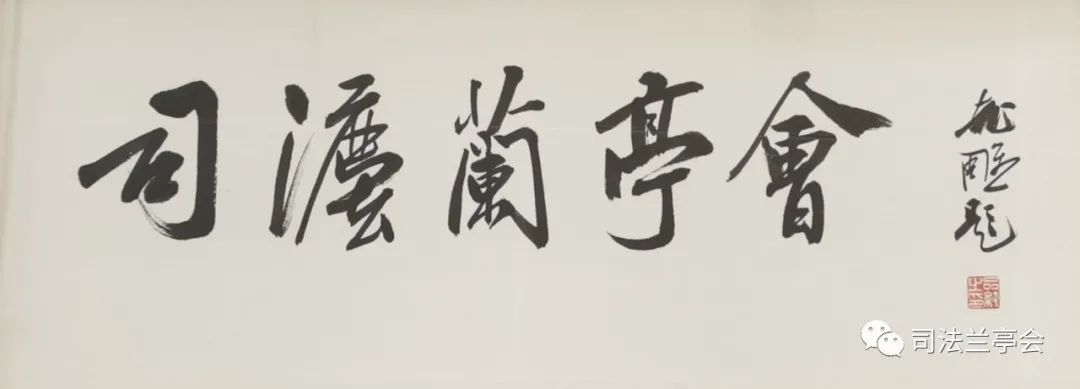 司灋蘭亭會
題
司法兰亭会